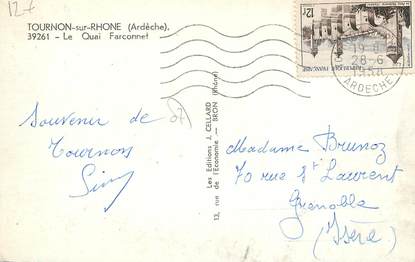 12f
TOURNON-sur-RHONE (Ardèche),
39261 - Le Quai Farconnet
12F
REPUBLIQUE FRANÇAISE
19
28-6
1956
ARDECHE
Souvenir de
Tournon
Les Editions J. CELLARD
13, rue de l'Economie — BRON (Rhône)
Madame Brunoz
70 rue St Laurent
Grenoble
(Isère)